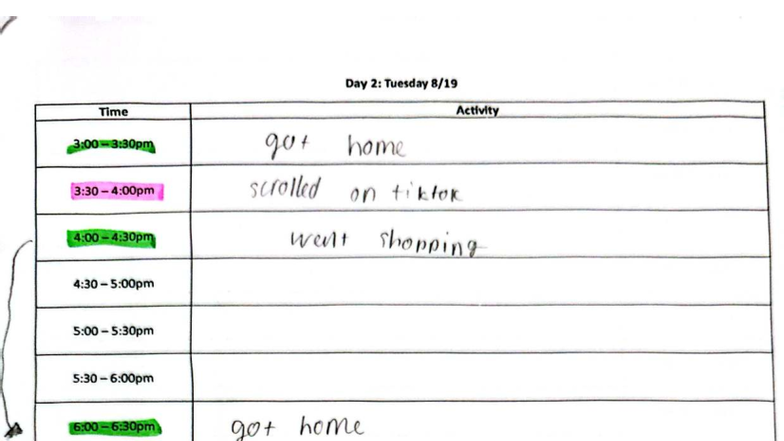 Day 2: Tuesday 8/19
Time Activity
3:00 – 3:30pm got home
3:30 – 4:00pm scrolled on tiktok
4:00 – 4:30pm went shopping
4:30 – 5:00pm
5:00 – 5:30pm
5:30 – 6:00pm
6:00 – 6:30pm got home